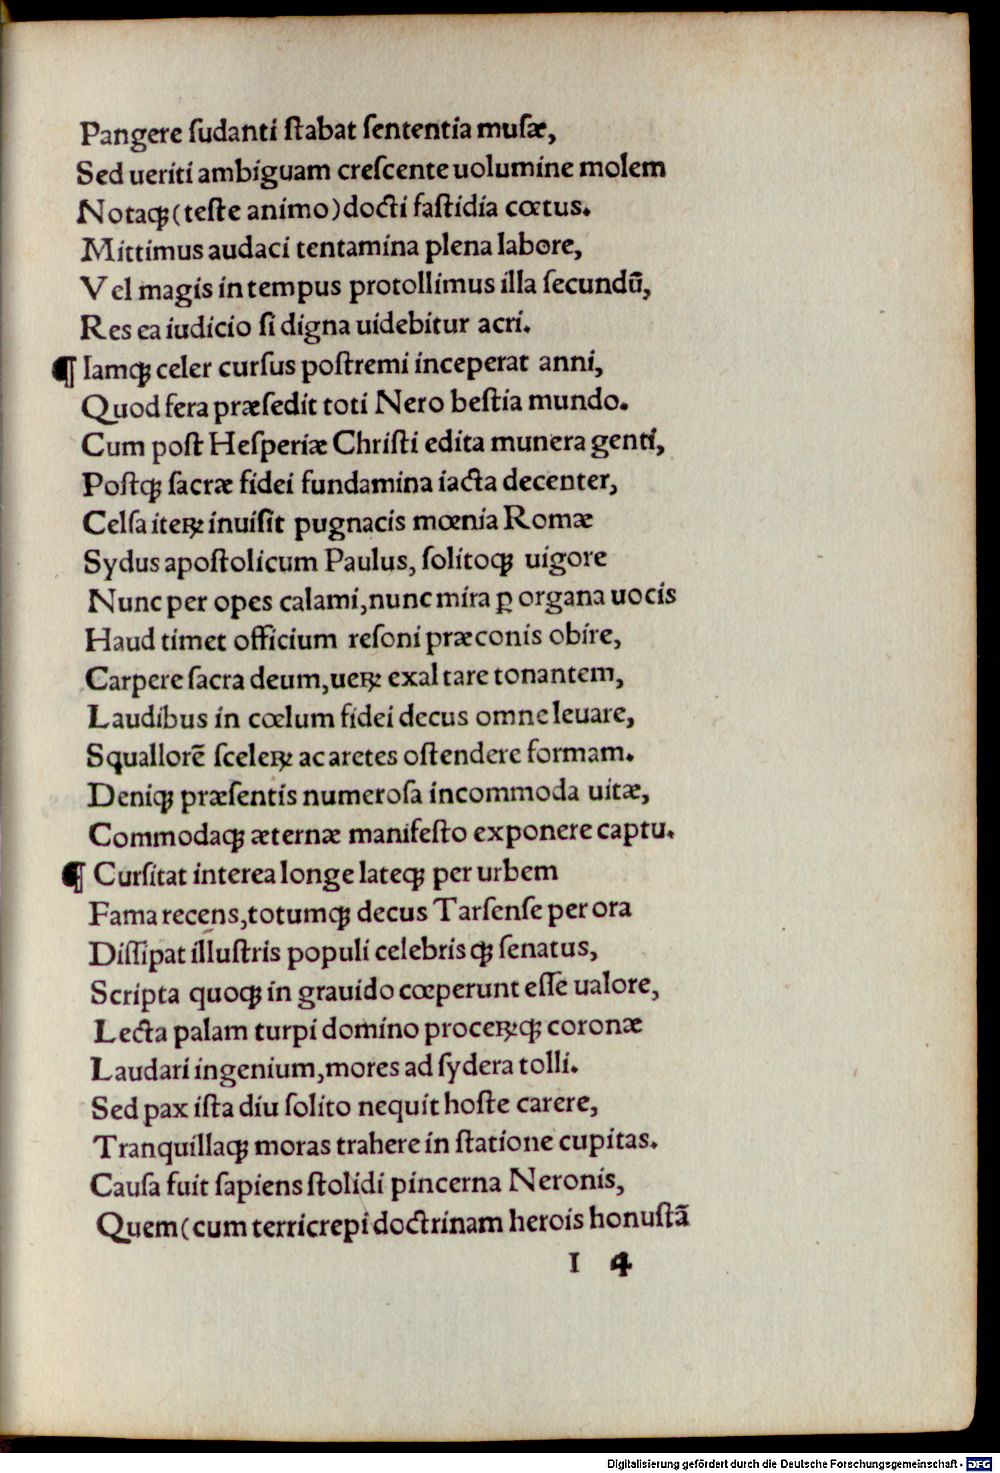 Pangere ſudanti ſtabat ſententia muſæ,
Sed ueriti ambiguam creſcente uolumine molem
Notaqꝫ (teſte animo) docti faſtidia cœtus.
Mittimus audaci tentamina plena labore,
Vel magis in tempus protollimus illa ſecundū,
Res ea iudicio ſi digna uidebitur acri.
¶ Iamqꝫ celer curſus poſtremi inceperat anni,
Quod fera præſedit toti Nero beſtia mundo.
Cum poſt Heſperiæ Chriſti edita munera genti,
Poſtqꝫ ſacræ fidei fundamina iacta decenter,
Celſa iteꝝ inuiſit pugnacis mœnia Romæ
Sydus apoſtolicum Paulus, ſolitoqꝫ uigore
Nunc per opes calami, nunc mira ꝑ organa uocis
Haud timet officium reſoni præconis obire,
Carpere ſacra deum, ueꝝ exaltare tonantem,
Laudibus in cœlum fidei decus omne leuare,
Squallorē ſceleꝝ ac aretes oſtendere formam.
Deniqꝫ præſentis numeroſa incommoda uitæ,
Commodaqꝫ æternæ manifeſto exponere captu.
¶ Curſitat interea longe lateqꝫ per urbem
Fama recens, totumqꝫ decus Tarſenſe per ora
Diſſipat illuſtris populi celebrisqꝫ ſenatus,
Scripta quoqꝫ in grauido cœperunt eſſe ualore,
Lecta palam turpi domino proceꝝqꝫ coronæ
Laudari ingenium, mores ad ſydera tolli.
Sed pax iſta diu ſolito nequit hoſte carere,
Tranquillaqꝫ moras trahere in ſtatione cupitas.
Cauſa fuit ſapiens ſtolidi pincerna Neronis,
Quem (cum terricrepi doctrinam herois honuſtā
I 4
Digitalisierung gefördert durch die Deutsche Forschungsgemeinschaft - DFG